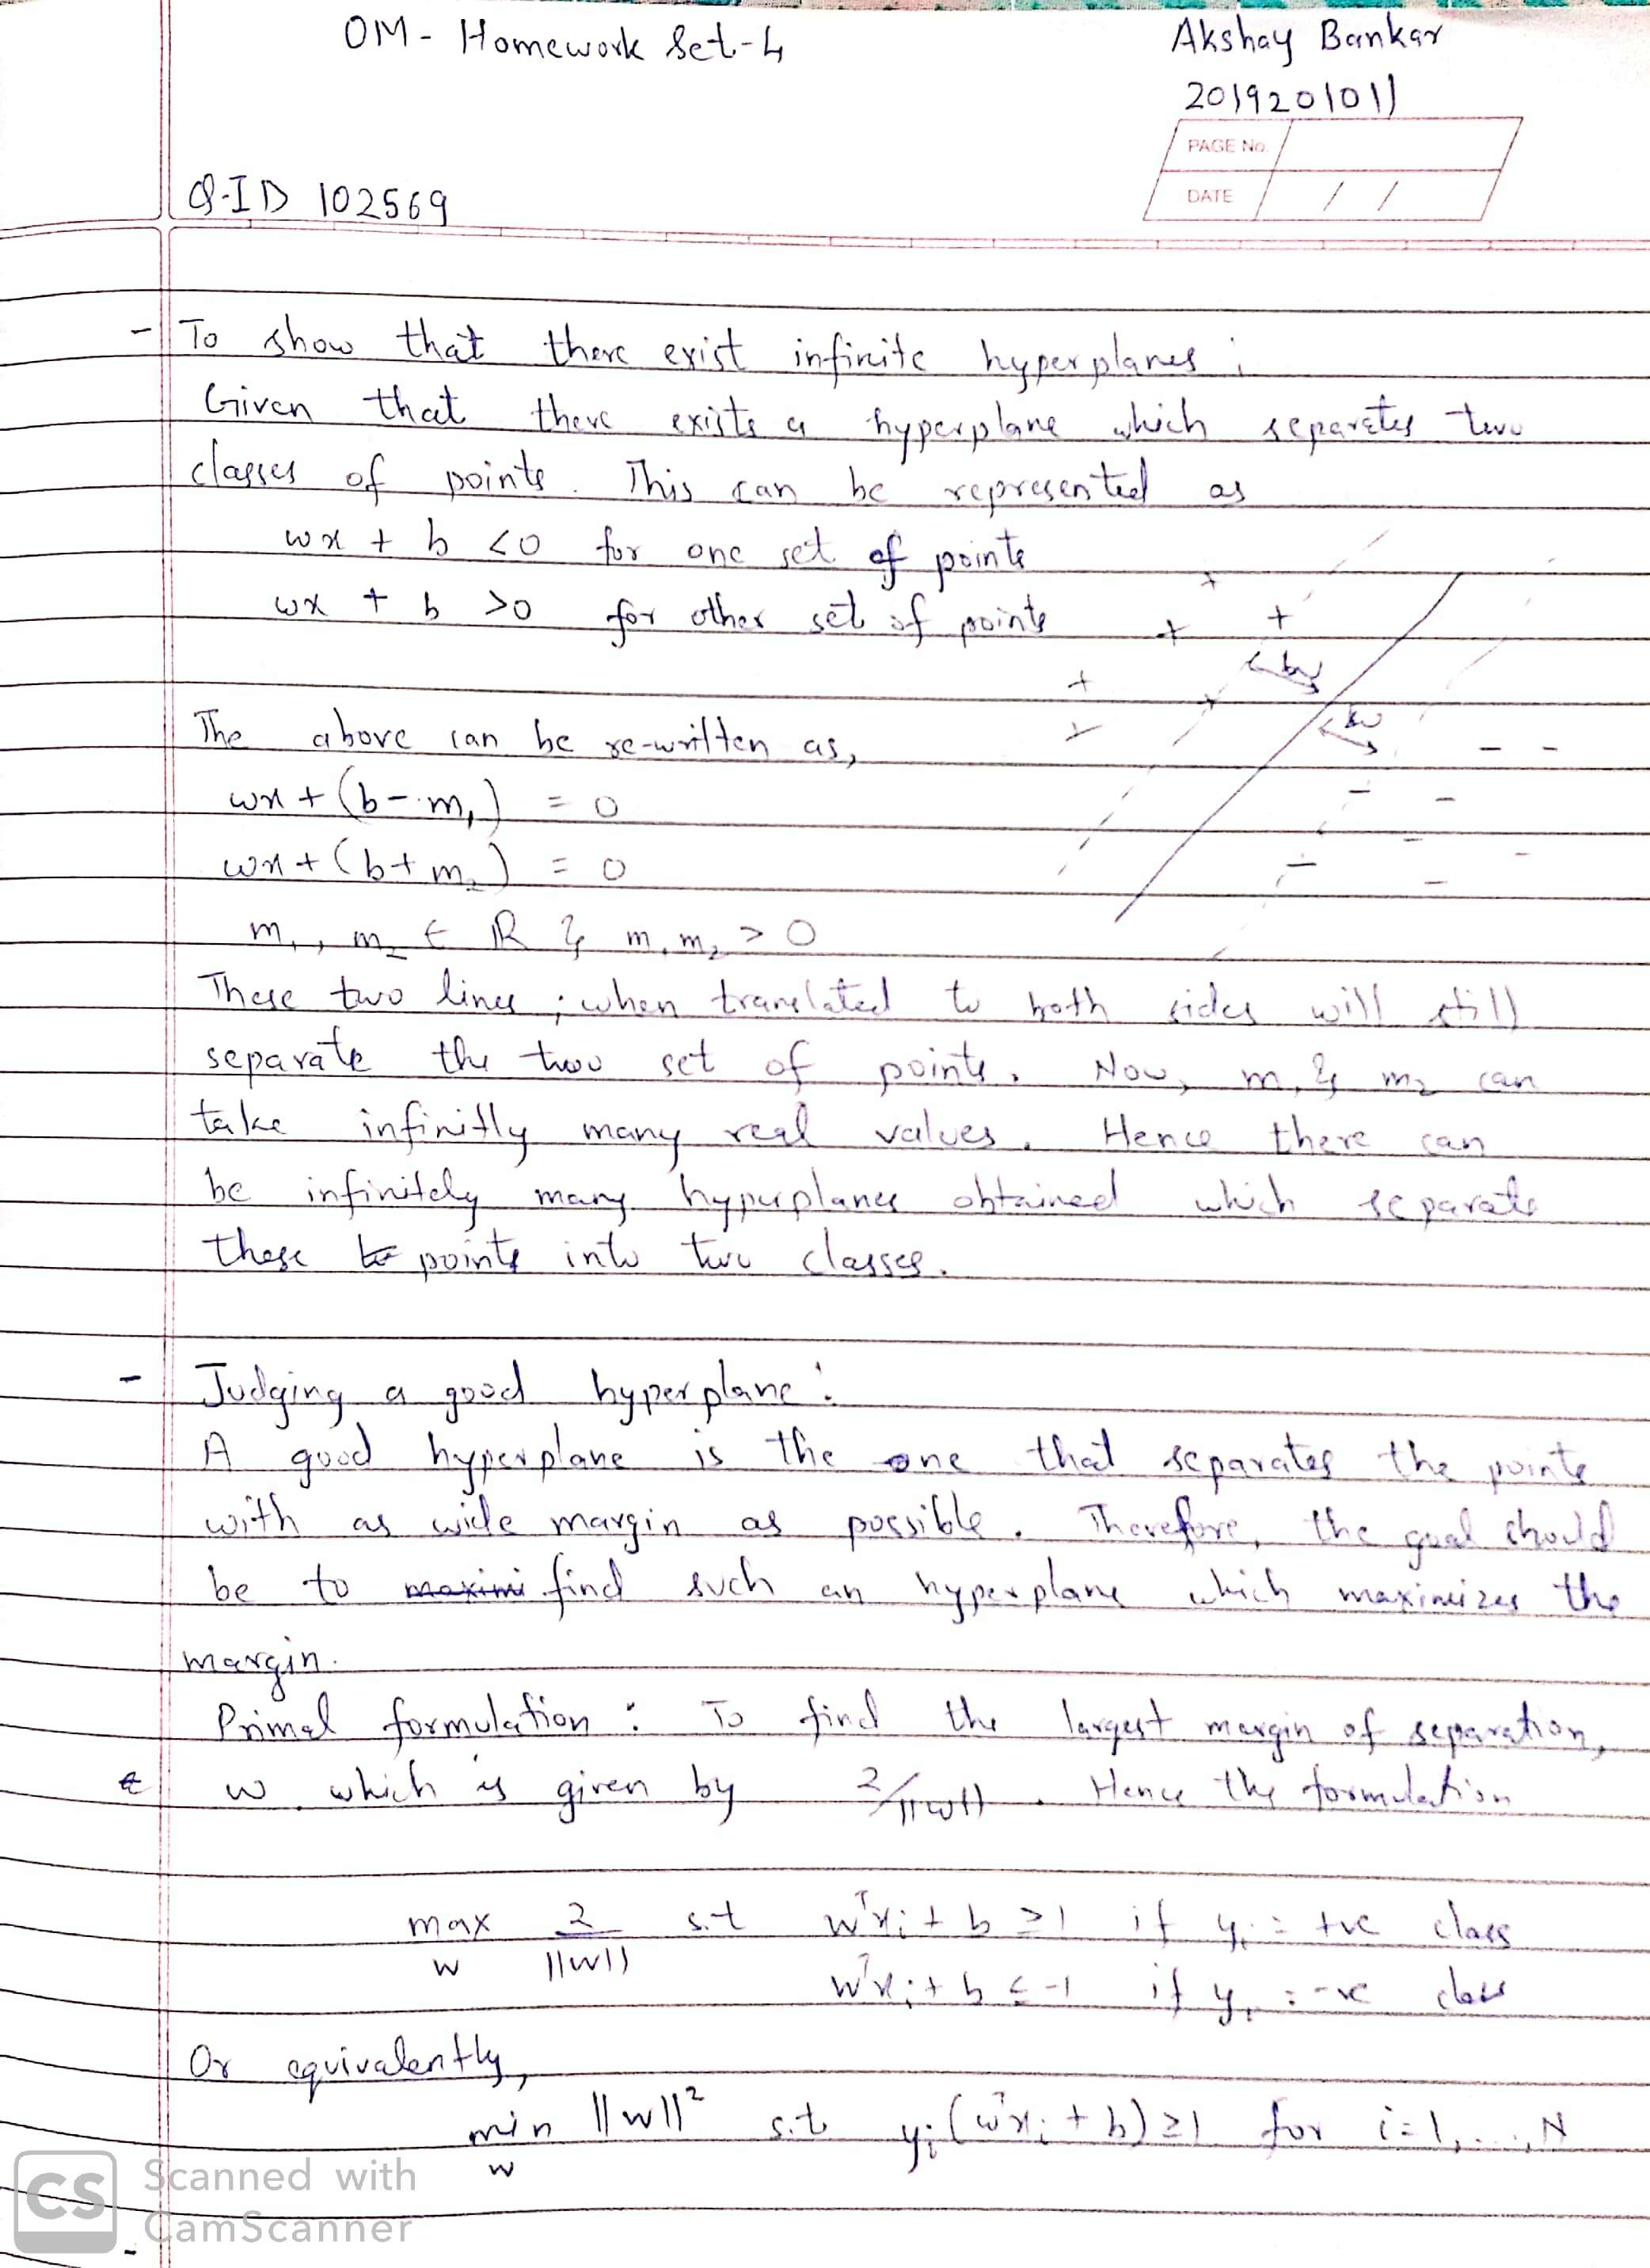 OM - Homework Set-4
Akshay Bankar
2019201011
PAGE No.
DATE / /
Q-ID 102569
- To show that there exist infinite hyperplanes ;
Given that there exists a hyperplane which separetes two
classes of points. This can be represented as
wx + b <0 for one set of points
wx + b >0 for other set of points
The above can be re-written as,
wx + (b - m₁) = 0
wx + (b + m₂) = 0
m₁, m₂ ∈ R & m₁ m₂ > 0
These two lines ; when translated to both sides will still
separate the two set of points. Now, m₁ & m₂ can
take infinitly many real values. Hence there can
be infinitely many hyperplanes obtained which separate
these points into two classes.
- Judging a good hyperplane :
A good hyperplane is the one that separates the points
with as wide margin as possible. Therefore, the goal should
be to maximi find such an hyperplane which maximizes the
margin.
Primal formulation : To find the largest margin of separation,
w which is given by 2/||w||. Hence the formulation
max 2 s.t wᵀxᵢ + b ≥ 1 if yᵢ = +ve class
w ||w|| wᵀxᵢ + b ≤ -1 if yᵢ = -ve class
Or equivalently,
min ||w||² s.t yᵢ(wᵀxᵢ + b) ≥ 1 for i=1,...,N
w
CS Scanned with
CamScanner